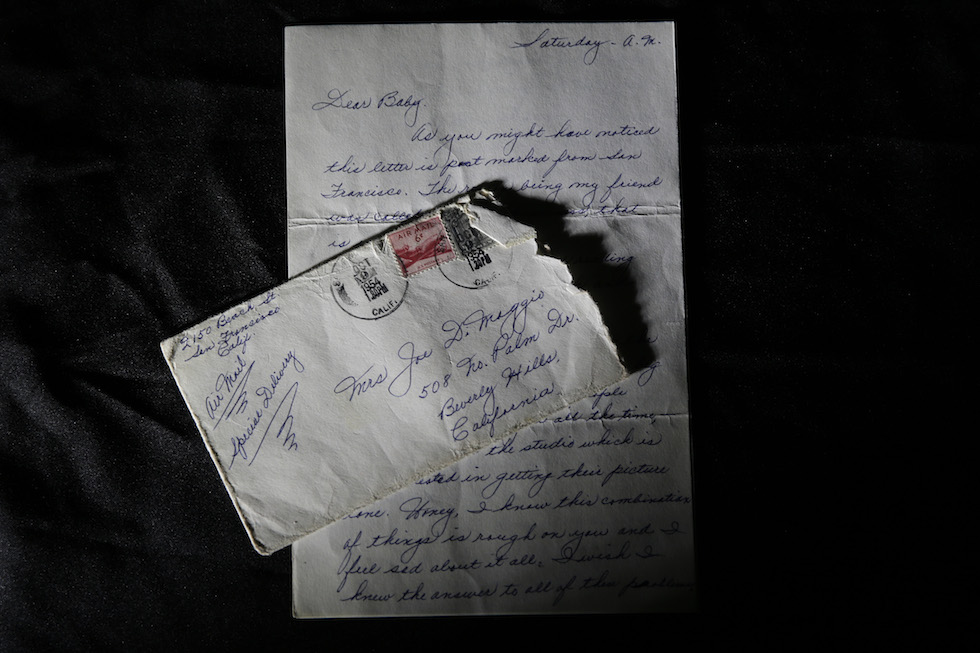 Saturday - A.M.
Dear Baby.
As you might have noticed
this letter is post marked from San
Francisco. The being my friend
was that
is
all the time,
the studio which is
in getting their picture
Honey, I know this combination
of things is rough on you and I
feel sad about it all, I wish I
knew the answer to all of these
2150 Beach St
San Francisco
Calif.
Air Mail
Special Delivery
AIR MAIL
6¢
OCT
1954
CALIF.
1954
CALIF.
Mrs Joe Di Maggio
508 No. Palm Dr.
Beverly Hills,
California